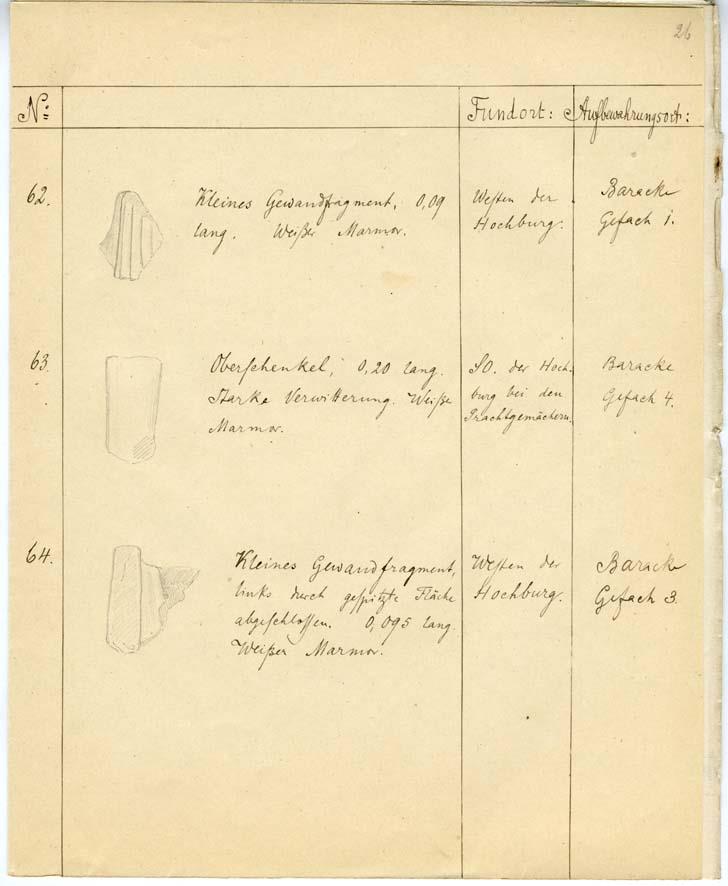 26
No: Fundort: Aufbewahrungsort:
62. Kleines Gewandfragment, 0,09 Westen der Baracke
lang. Weißer Marmor. Hochburg. Gefach 1.
63. Oberschenkel, 0,20 lang. SO. der Hoch- Baracke
Starke Verwitterung. Weißer burg bei den Gefach 4.
Marmor. Prachtgemächern.
64. Kleines Gewandfragment, Westen der Baracke
links durch gespitzte Fläche Hochburg. Gefach 3.
abgeschlossen. 0,095 lang.
Weißer Marmor.